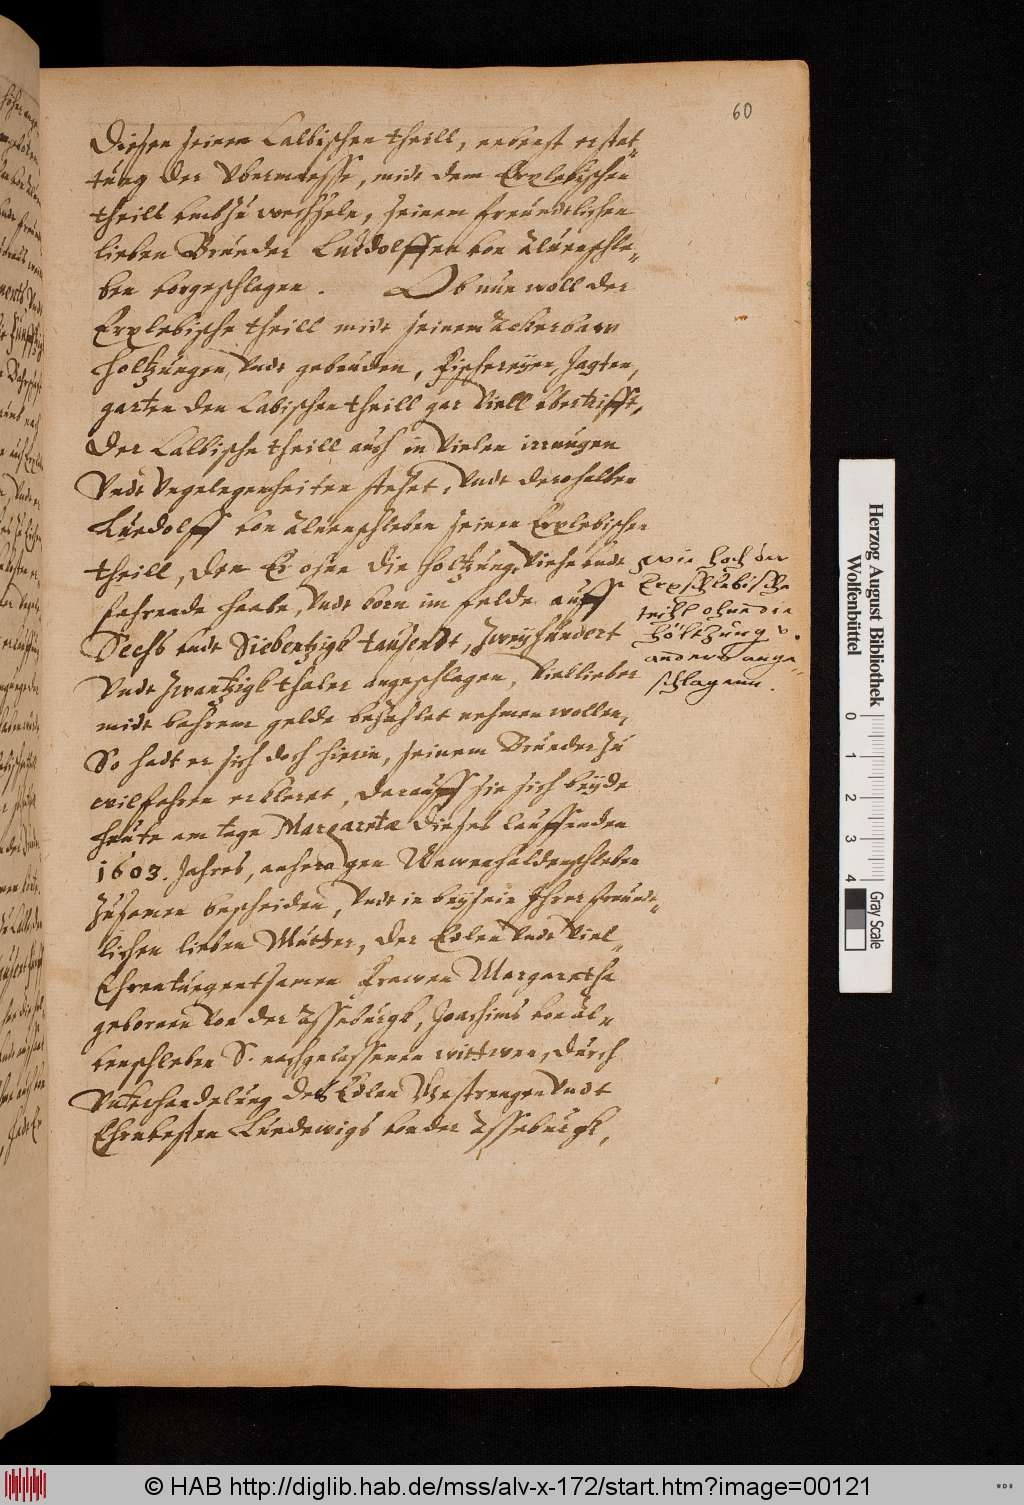 60
Diesen seinen Calbischen theill, nebenst erstat-
tung der Vbermasse, midt dem Erxlebischen
theill umbzuwechseln, seinem freundtlichen
lieben Brueder Luedolffen von Aluenschle-
ben vorgeschlagen. Ob nun woll der
Erxlebische theill midt seinem Ackerbaw
Holtzungen, Vndt gebeuden, Fischereyen, Jagten,
garten den Calbischen theill gar Viell vbertrifft,
Der Calbische theill auch in Vielen irrungen
Vndt Vngelegenheiten stehet, Vndt derohalben
Luedolff von Aluenschleben seinen Erxlebischen
theill, den Er ohne die Holtzung, Viehe vndt
fahrende Haabe, Vndt korn im felde auff
Sechs vndt Siebentzigk tausendt, Zweyhundert
Vndt Zwantzigk thaler angeschlagen, Viellieber
midt bahrem gelde bezahlet nehmen wollen,
So hadt er sich doch hierin, seinem Brueder zu
wilfahren erkleret, Darauff sie sich beyde
heute am tage Margareta dieses lauffenden
1603. Jahres, anhero gen Nawenhaldenschleben
Zusamen bescheiden, Vndt in beysein Ihrer freundt-
lichen lieben Mutter, der Edlen Vndt Viel-
Ehrentugentsamen Frawen Margaretha
gebornen Von der Asseburgk, Joachims von Al-
venschleben S. nachgelassenen wittwen, Durch
Vnterhandelung des Edlen Gestrengen Vndt
Ehrnvesten Luedewigs von der Asseburgk,
wie hoch der
Erxschlebische
teihl ohne die
Höltzung v.
anders ange-
schlagenn.
Herzog August Bibliothek
Wolfenbüttel
0 1 2 3 4
Gray Scale
© HAB http://diglib.hab.de/mss/alv-x-172/start.htm?image=00121